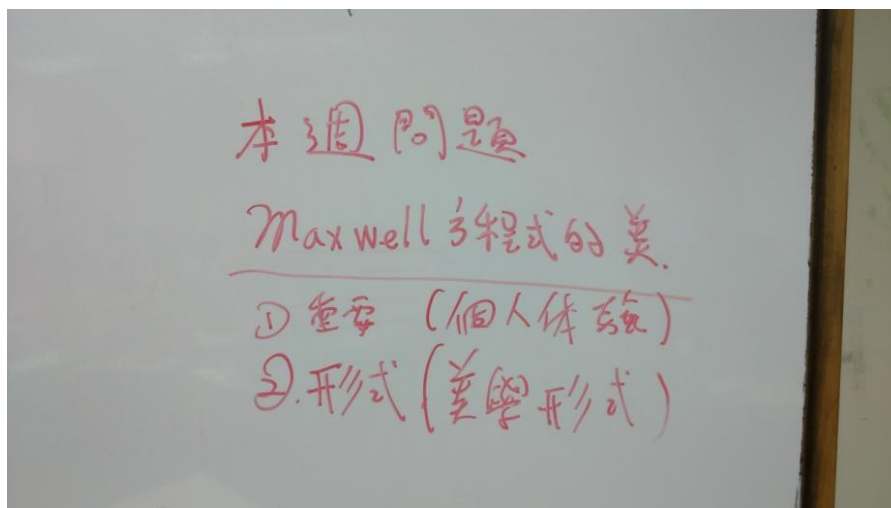 本週問題
Maxwell 方程式的美.
① 重要 (個人体驗)
②.形式(美學形式)